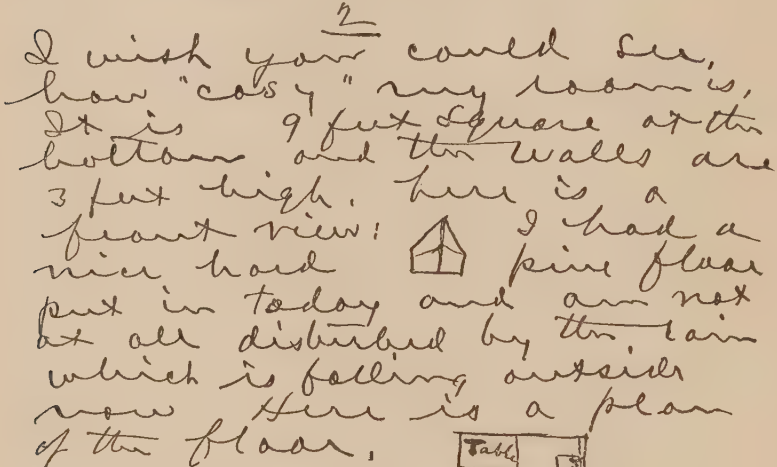 2
I wish you could see,
how "cosy" my room is,
It is 9 feet square at the
bottom and the walls are
3 feet high. here is a
front view: I had a
nice hard pine floor
put in today and am not
at all disturbed by the rain
which is falling outside
now Here is a plan
of the floor.
Table